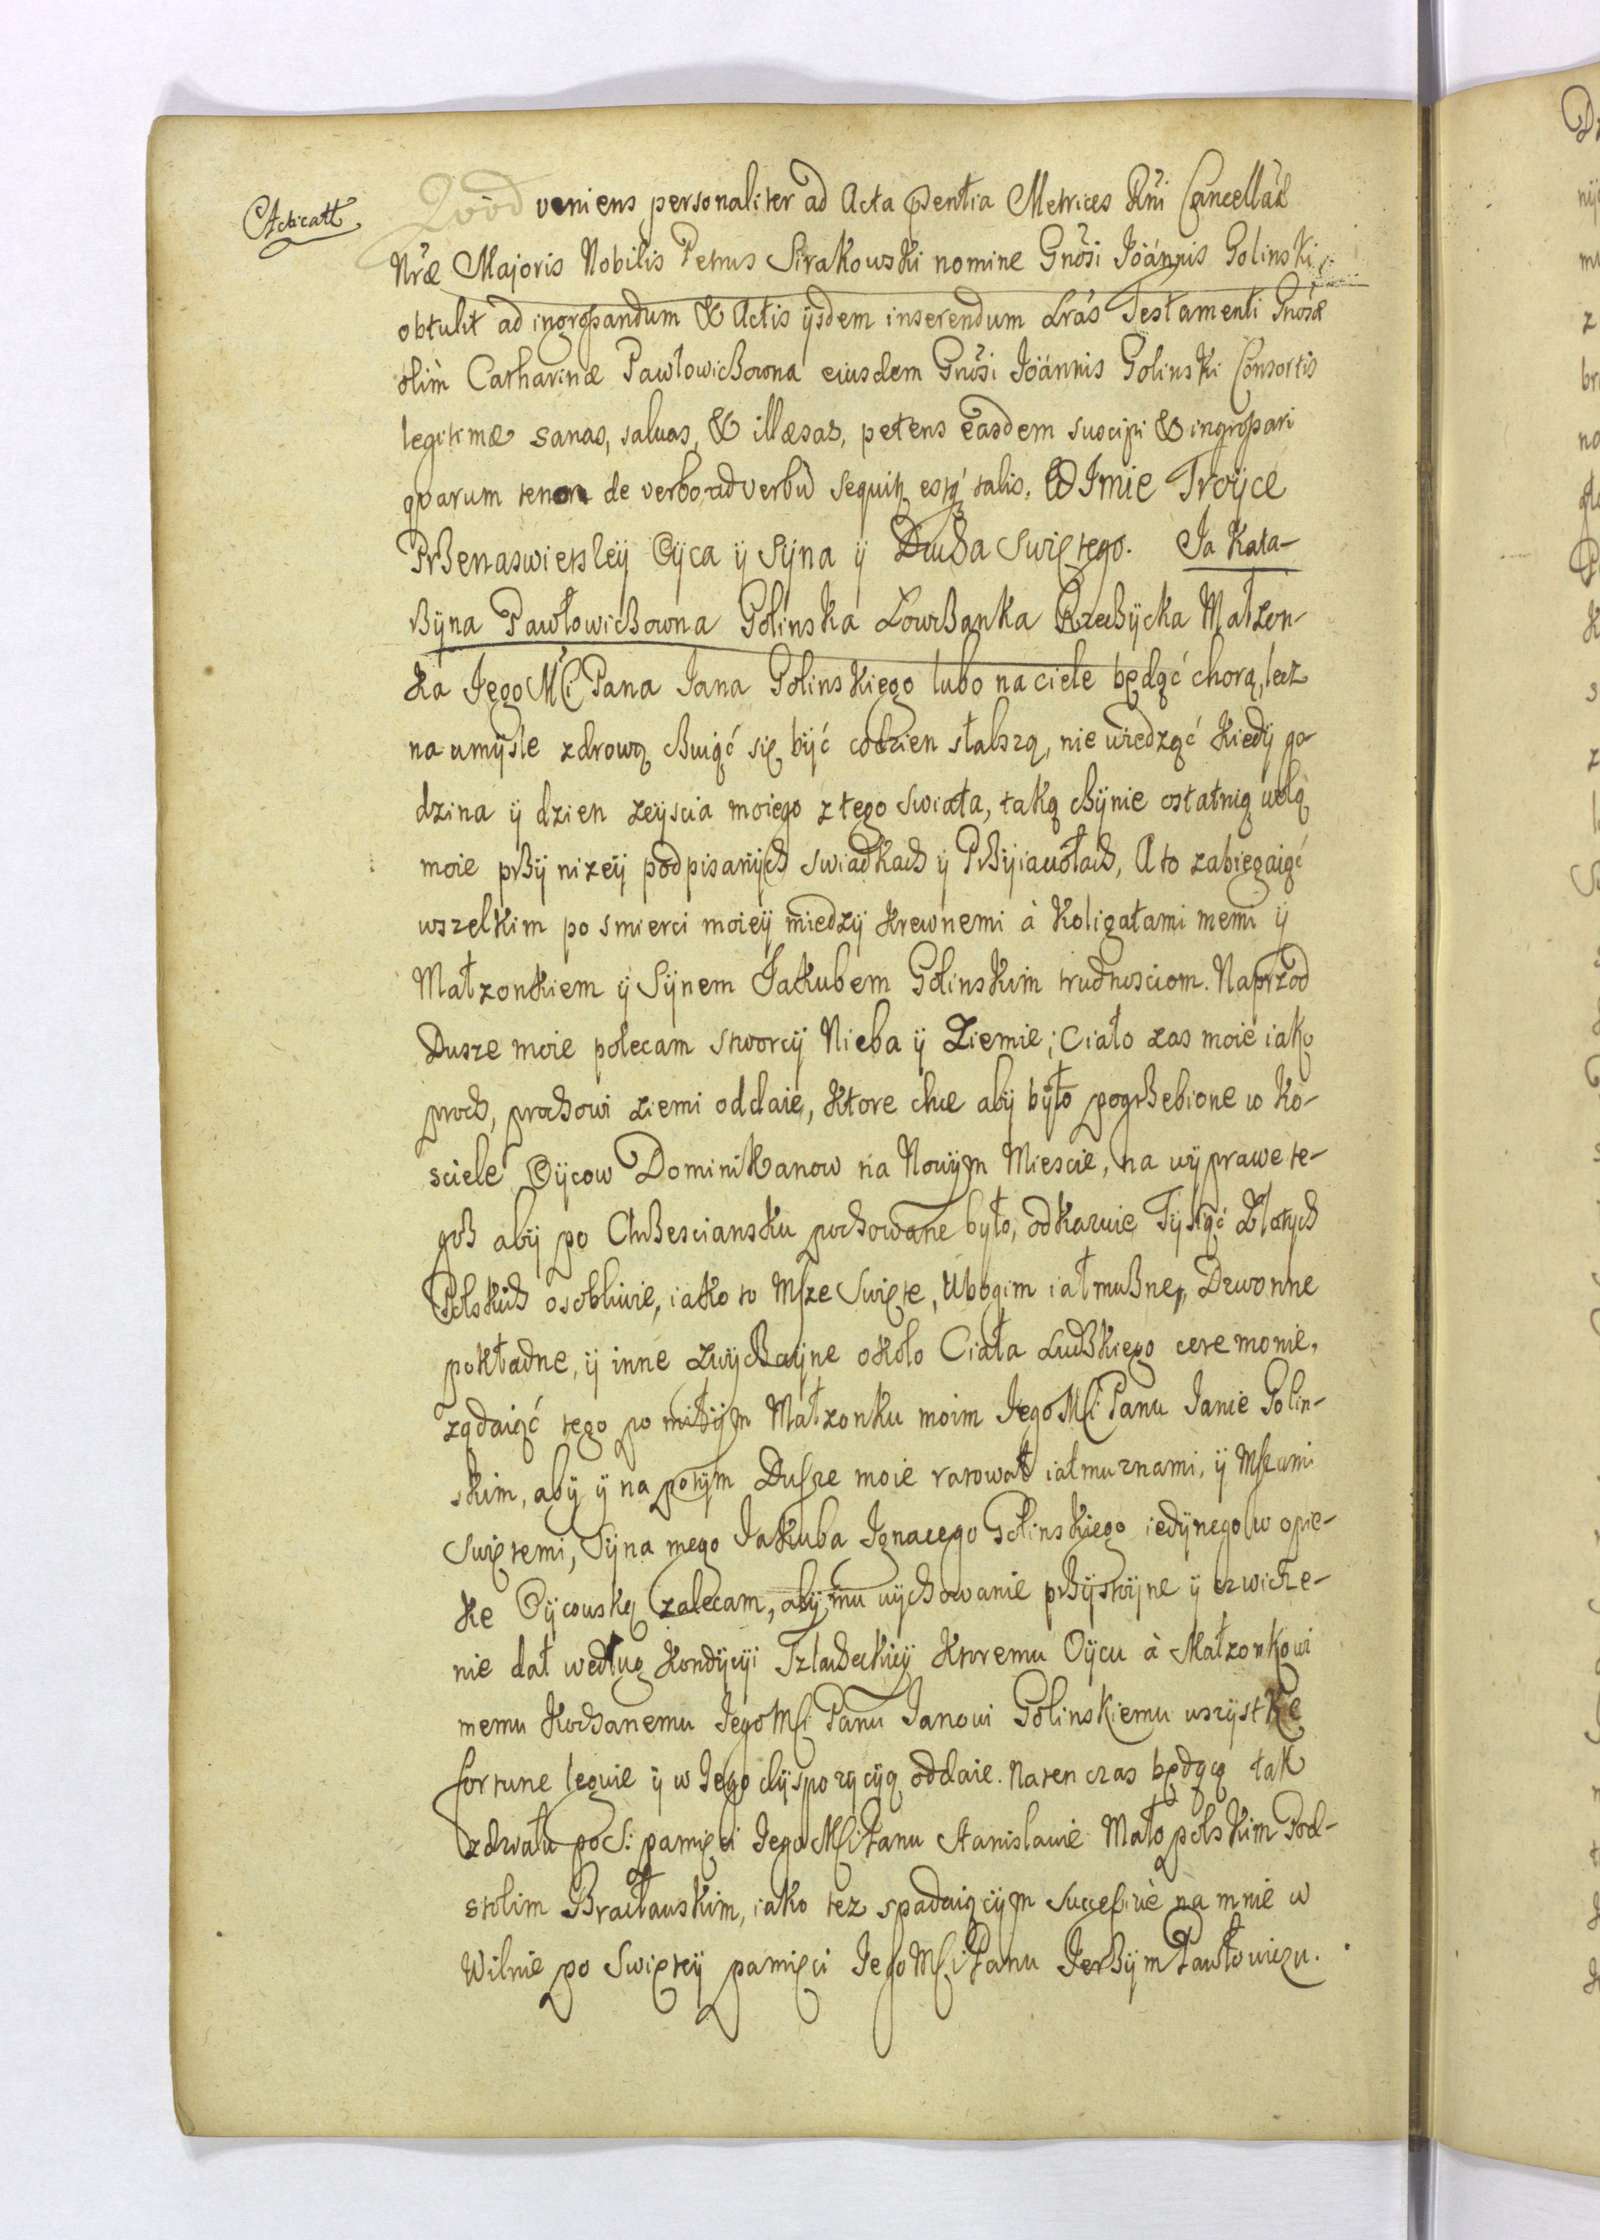 Acticatt
Quod veniens personaliter ad Acta pentia Metrices Rñi Cancellar̃
Nræ Majoris Nobilis Petrus Sirakowski nomine Gnosi Joannis Golinski
obtulit ad ingrossandum & Actis ijsdem inserendum Lrás Testamenti Gnosæ
olim Catharinæ Pawłowiczowna eiusdem Gnosi Joannis Golinski Consortis
legitimæ sanas, saluas, & illæsas, petens easdem suscipi & ingrossari
qvarum tenor de verbo ad verbũ sequitr estq́ talis. W Imie Troÿce
Przenaswietsleÿ Oÿca ÿ Sÿna ÿ Ducha Swiętego. Ja Kata-
rzÿna Pawłowiczowna Golinska Łowczanka Rzeczÿcka Małzon-
ka Jego Mści Pana Jana Golinskiego lubo na ciele będąć chorą, lecz
na umÿsle zdrową czuiąć się bÿć codzien słabszą, nie wiedząć kiedÿ go-
dzina ÿ dzien zeÿscia moiego z tego swiata, taką czÿnie ostatnią wolą
moie przÿ nizeÿ podpisanÿch swiadkach ÿ Przÿiaciołach, A to zabiegaiąć
wszelkim po smierci moieÿ miedzÿ krewnemi à Koligatami memi ÿ
Małzonkiem ÿ Sÿnem Jakubem Golinskim trudnosciom. Naprzod
Dusze moie polecam stworcÿ Nieba ÿ Ziemie; Ciało zas moie iako
proch, prochowi ziemi oddaie, ktore chce abÿ bÿło pogrzebione w Ko-
sciele Oÿcow Dominikanow na Nowÿm Miescie, na wÿprawe te-
goz abÿ po Chrzesciansku pochowane bÿło, odkazuie Tÿsiąć Złotÿch
Polskich osobliwie, iako to Msze Swięte, Ubogim iałmuzne, Dzwonne
pokładne, ÿ inne zwÿczaÿne około Ciała Ludzkiego ceremonie,
ządaiąć tego po miłÿm Małzonku moim Jego Mści Panu Janie Golin-
skim, abÿ ÿ na potÿm Dusze moie ratował iałmuznami, ÿ Mszami
Swiętemi, Sÿna mego Jakuba Ignacego Golinskiego iedÿnego w opie-
ke Oÿcowską zalecam, abÿ mu wÿchowanie przÿstoÿne ÿ czwicze-
nie dał według kondÿcÿi Szlacheckiÿ ktoremu Oÿcu à Małzonkowi
memu kochanemu Jego Mści Panu Janowi Golinskiemu wszÿstkę
fortune leguie ÿ w Jego dÿspozÿcÿą oddaie. Na ten czas będącą tak
z działu po S. pamięci Jego Mści Panu Stanisławie Małopolskim Pod-
stolim Bracławskim, iako tez spadaiącÿm Successive na mnie w
Wilnie po Swiętÿ pamięci Jego Mści Panu Jerzÿm Pawłowiczu.